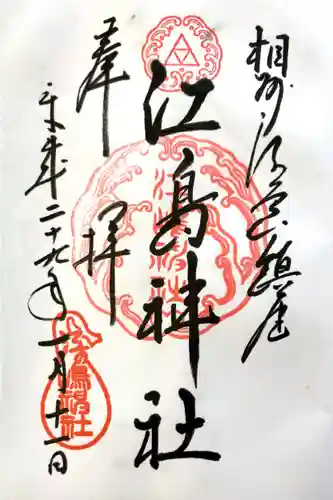 相州江の島鎮座
奉拝
江島神社
平成二十九年一月十一日
江島神社